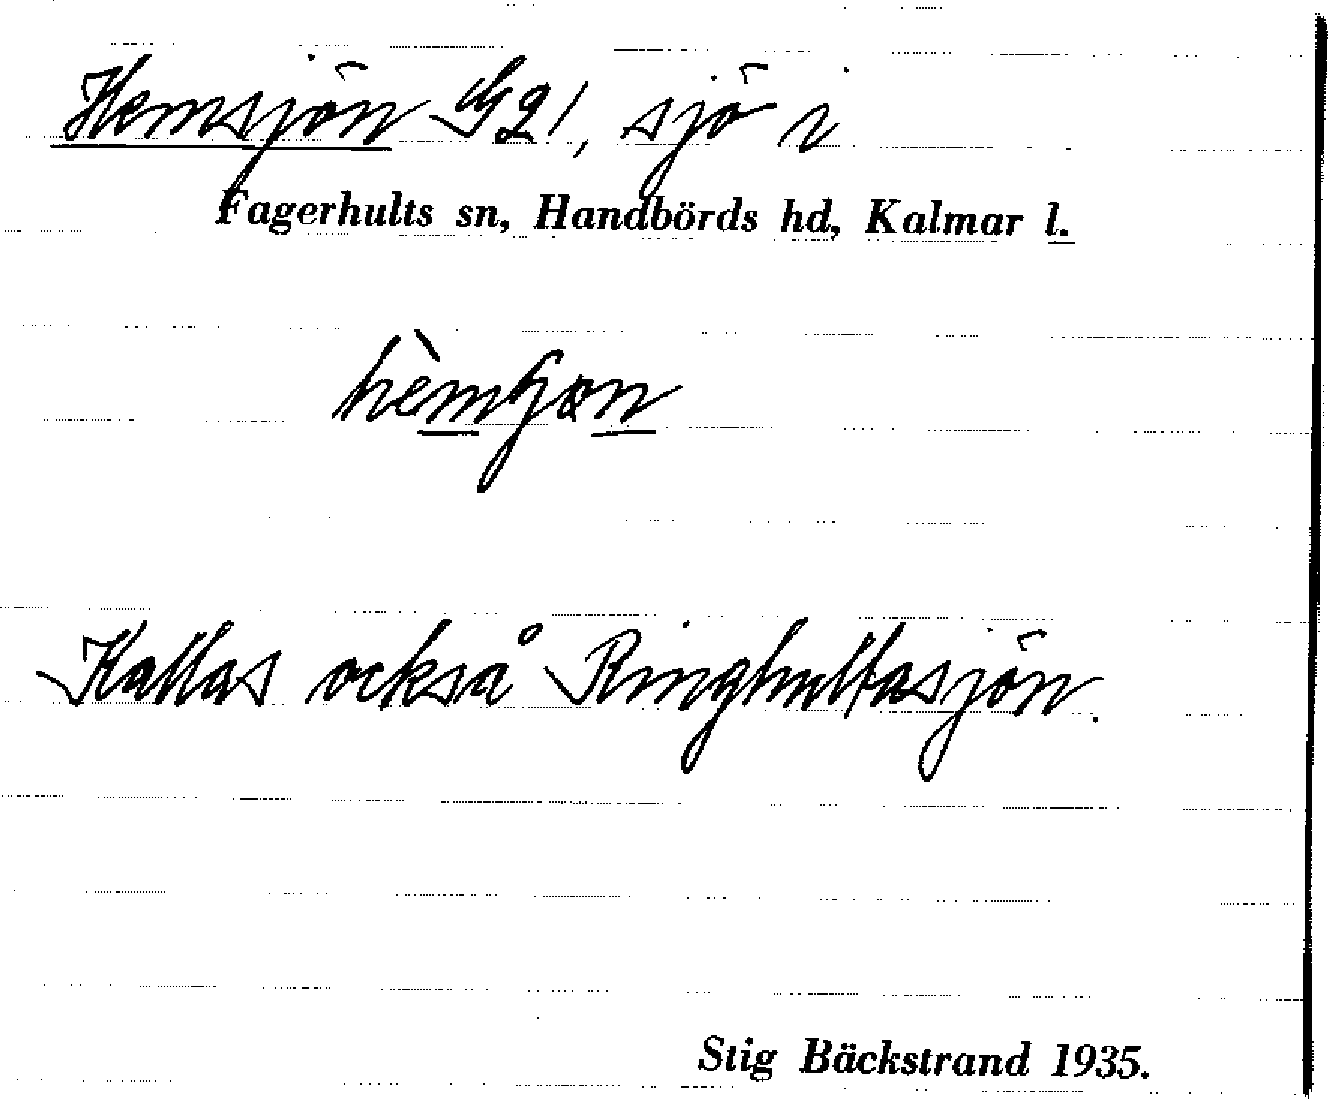 Hemsjön G21, sjö i
Fagerhults sn, Handbörds hd, Kalmar l.
Kallas också Ringhultasjön.
Stig Bäckstrand 1935.